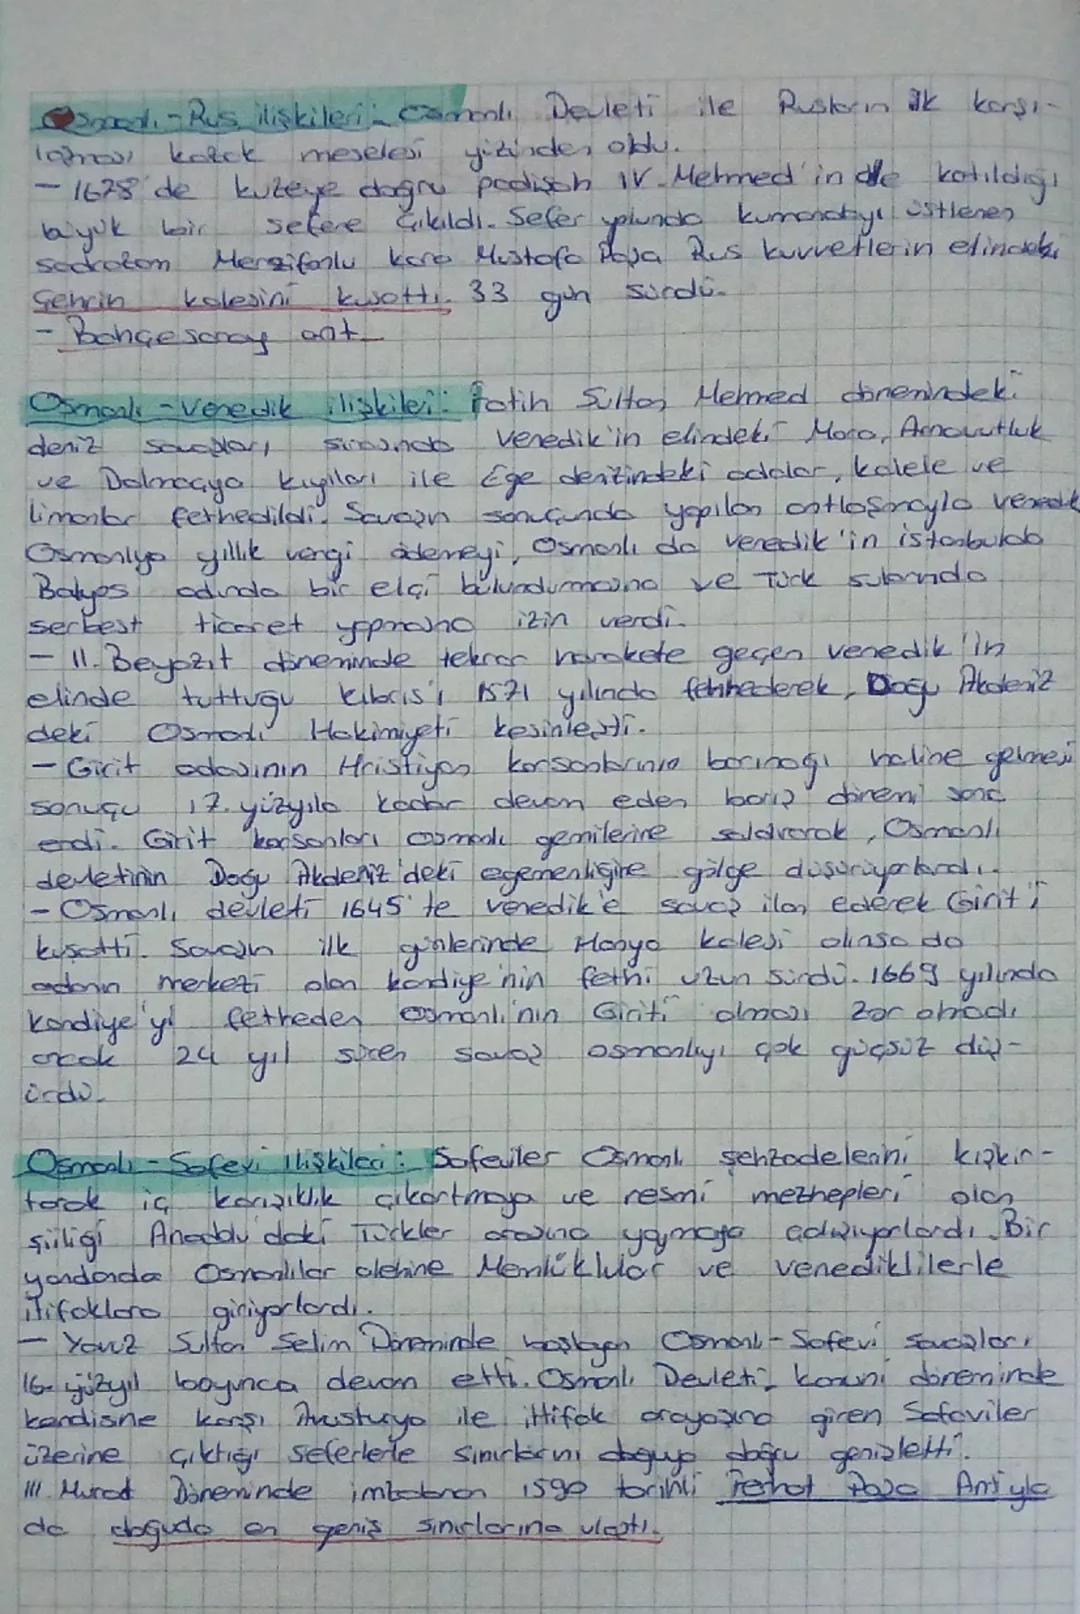 Osmanlı-Rus ilişkileri: Osmanlı Devleti ile Rusların ilk karşı-
laşması kazak meselesi yüzünden oldu.
- 1678'de kuzeye doğru padişah IV. Mehmed'in de katıldığı
büyük bir sefere çıkıldı. Sefer yolunda kumandayı üstlenen
sadrazam Merzifonlu kara Mustafa Paşa Rus kuvvetlerin elindeki
Çehrin kalesini kuşattı. 33 gün sürdü.
- Bahçesaray ant.
Osmanlı-Venedik ilişkileri: Fatih Sultan Mehmed dönemindeki
deniz savaşları sırasında Venedik'in elindeki Mora, Arnavutluk
ve Dalmaçya kıyıları ile Ege denizindeki adalar, kalele ve
limanlar fethedildi. Savaşın sonucunda yapılan antlaşmayla venedik
Osmanlıya yıllık vergi ödemeyi, Osmanlı da venedik'in istanbulda
Balyos adında bir elçi bulundurmasına ve Türk sularında
serbest ticaret yapmasına izin verdi.
- II. Beyazıt döneminde tekrar harekete geçen venedik'in
elinde tuttuğu kıbrıs'ı 1571 yılında fethederek, Doğu Akdeniz
deki Osmanlı Hakimiyeti kesinleşti.
- Girit adasının Hristiyan korsanlarının barınağı haline gelmesi
sonuçu 17. yüzyıla kadar devam eden barış dönemi sona
erdi. Girit korsanları osmanlı gemilerine saldırarak, Osmanlı
devletinin Doğu Akdeniz'deki egemenliğine gölge düşürüyorlardı.
- Osmanlı devleti 1645'te venedik'e savaş ilan ederek Girit'i
kuşattı. Savaşın ilk günlerinde Hanya kalesi alınsa da
adanın merkezi olan kandiye'nin fethi uzun sürdü. 1669 yılında
Kandiye'yi fetheden osmanlı'nın Giriti alması zor olmadı
ancak 24 yıl süren savaş osmanlıyı çok güçsüz düş-
ürdü.
Osmanlı-Safevi ilişkileri: Safeviler Osmanlı şehzadelerini kışkır-
tarak iç karışıklık çıkartmaya ve resmi mezhepleri olan
şiiliği Anadolu'daki Türkler arasına yaymaya çalışıyorlardı. Bir
yandanda Osmanlılar alehine Memlüklular ve venediklilerle
itifaklara giriyorlardı.
- Yavuz Sultan Selim Döneminde başlayan Osmanlı-Safevi savaşları
16. yüzyıl boyunca devam etti. Osmanlı Devleti, kanuni döneminde
kendisine karşı Avusturya ile ittifak arayışına giren Safaviler
üzerine çıktığı seferlerle sınırlarını doğuya doğru genişletti.
III. Murad Döneminde imzalanan 1590 tarihli Ferhat Paşa Ant'yla
da doğuda en geniş sınırlarına ulaştı.